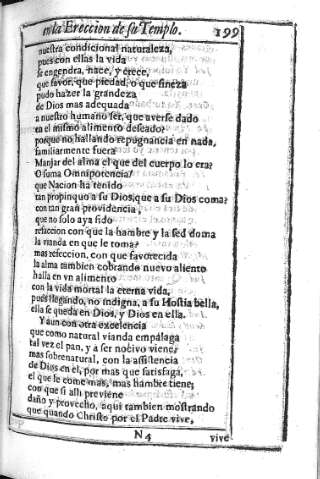 en la Ereccion de su Templo. 199
nuestra condicional naturaleza,
pues con ellas la vida
se engendra, nace, y crece,
que favor, que piedad, o que fineza
pudo hazer la grandeza
de Dios mas adequada
a nuestro humano ser, que averse dado
en el mismo alimento deseado?
porque no hallando repugnancia en nada,
familiarmente fuera
Manjar del alma el que del cuerpo lo era?
O suma Omnipotencia!
que Nacion ha tenido
tan propinquo a su Dios, que a su Dios coma?
con tan gran providencia,
que no solo aya sido
refaccion con que la hambre y la sed doma
la vianda en que le toma?
mas refeccion, con que favorecida
la alma tambien cobrando nuevo aliento
halla en vn alimento
con la vida mortal la eterna vida,
pues llegando, no indigna, a su Hostia bella,
ella se queda en Dios, y Dios en ella.
Y aun con otra excelencia
que como natural vianda empalaga
tal vez el pan, y a ser nocivo viene,
mas sobrenatural, con la assistencia
de Dios en el, por mas que satisfaga,
el que le come mas, mas hambre tiene;
con que si alli previene
daño y provecho, aqui tambien mostrando
que quando Christo por el Padre vive,
N 4 vive